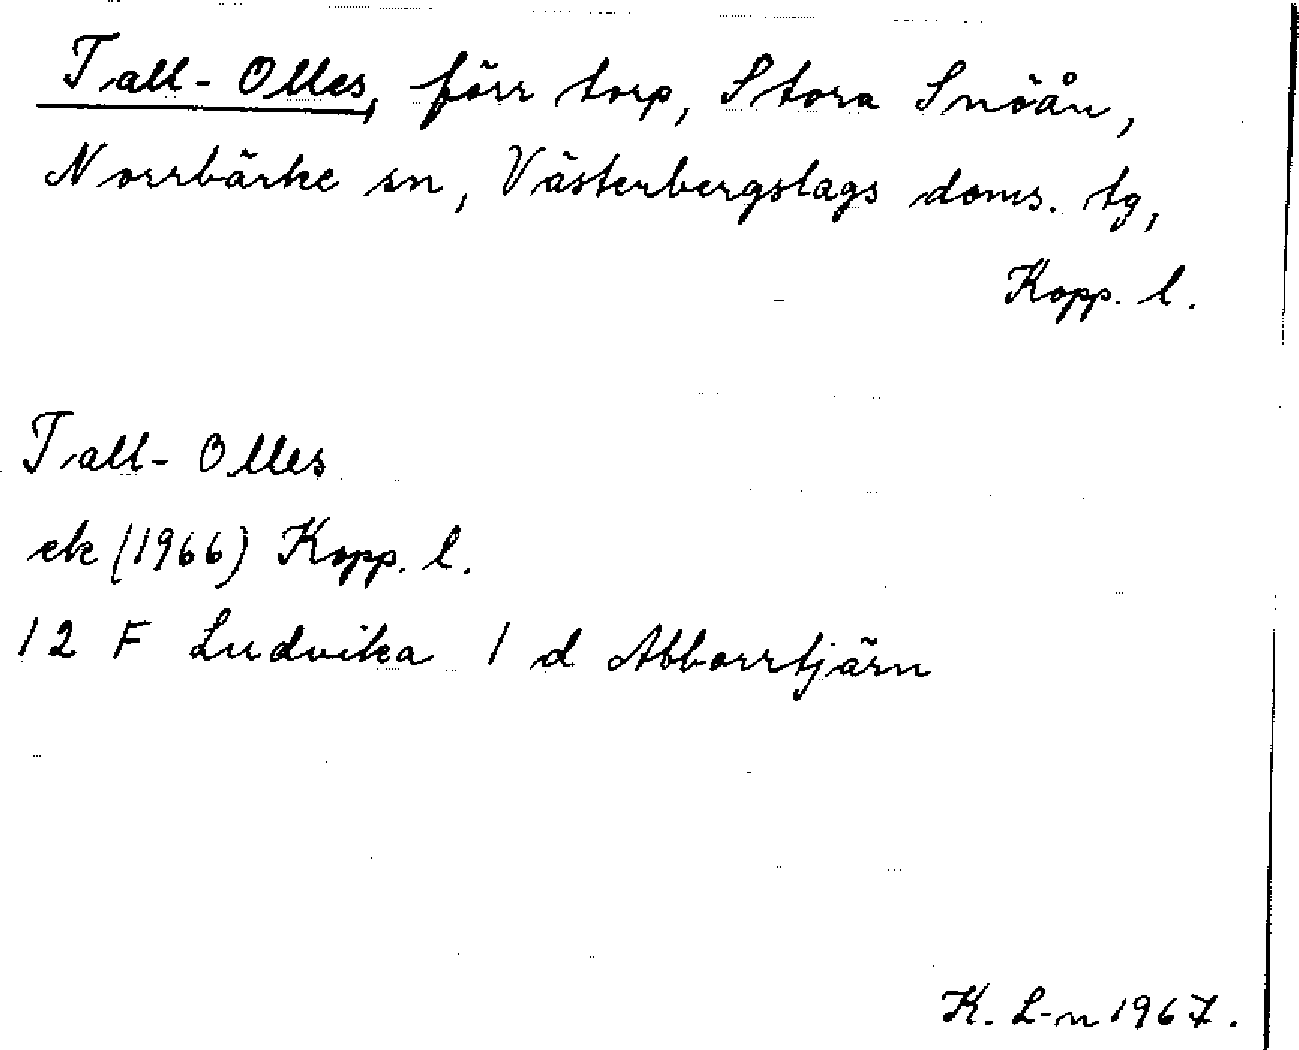 Tall-Olles, förr torp, Stora Snöån,
Norrbärke sn, Västerbergslags doms. tg,
Kopp. l.
Tall-Olles
ek (1966) Kopp. l.
12 F Ludvika 1 d Abborrtjärn
K. L-n 1967.